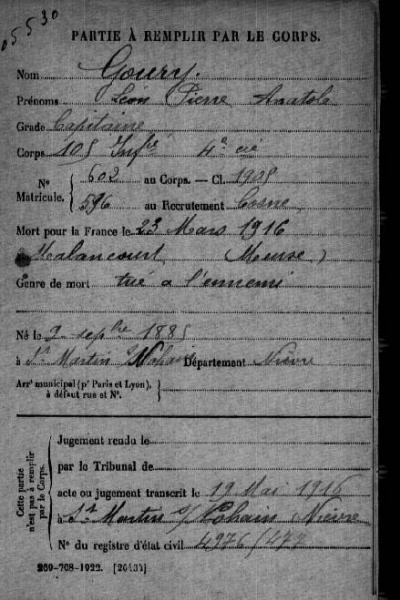 05530
PARTIE À REMPLIR PAR LE CORPS.
Nom Goury.
Prénoms Léon Pierre Anatole
Grade Capitaine
Corps 105 Infie 4e cie
N° Matricule. { 602 au Corps. — Cl. 1905
596 au Recrutement Cosne
Mort pour la France le 23 Mars 1916
Malancourt (Meuse)
Genre de mort tué a l'ennemi
Né le 2 septbre 1885
à St Martin s/Nohain Département Nièvre
Arrt municipal (pr Paris et Lyon), à défaut rue et N°.
Cette partie n'est pas à remplir par le Corps.
Jugement rendu le
par le Tribunal de
acte ou jugement transcrit le 19 Mai 1916
à St Martin s/Nohain Nièvre
N° du registre d'état civil 4976/472
269-708-1922. [26434]